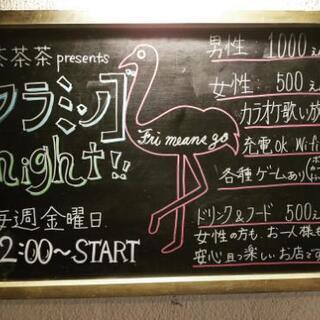 茶茶茶 presents
フラミンゴ
night!!
毎週金曜日
2:00～START
Fri means go
男性 1000
女性 500
カラオケ歌い放
充電ok Wifi
各種ゲームあり
ドリンク&フード 500
女性の方も、お一人様も
安心且つ楽しいお店です